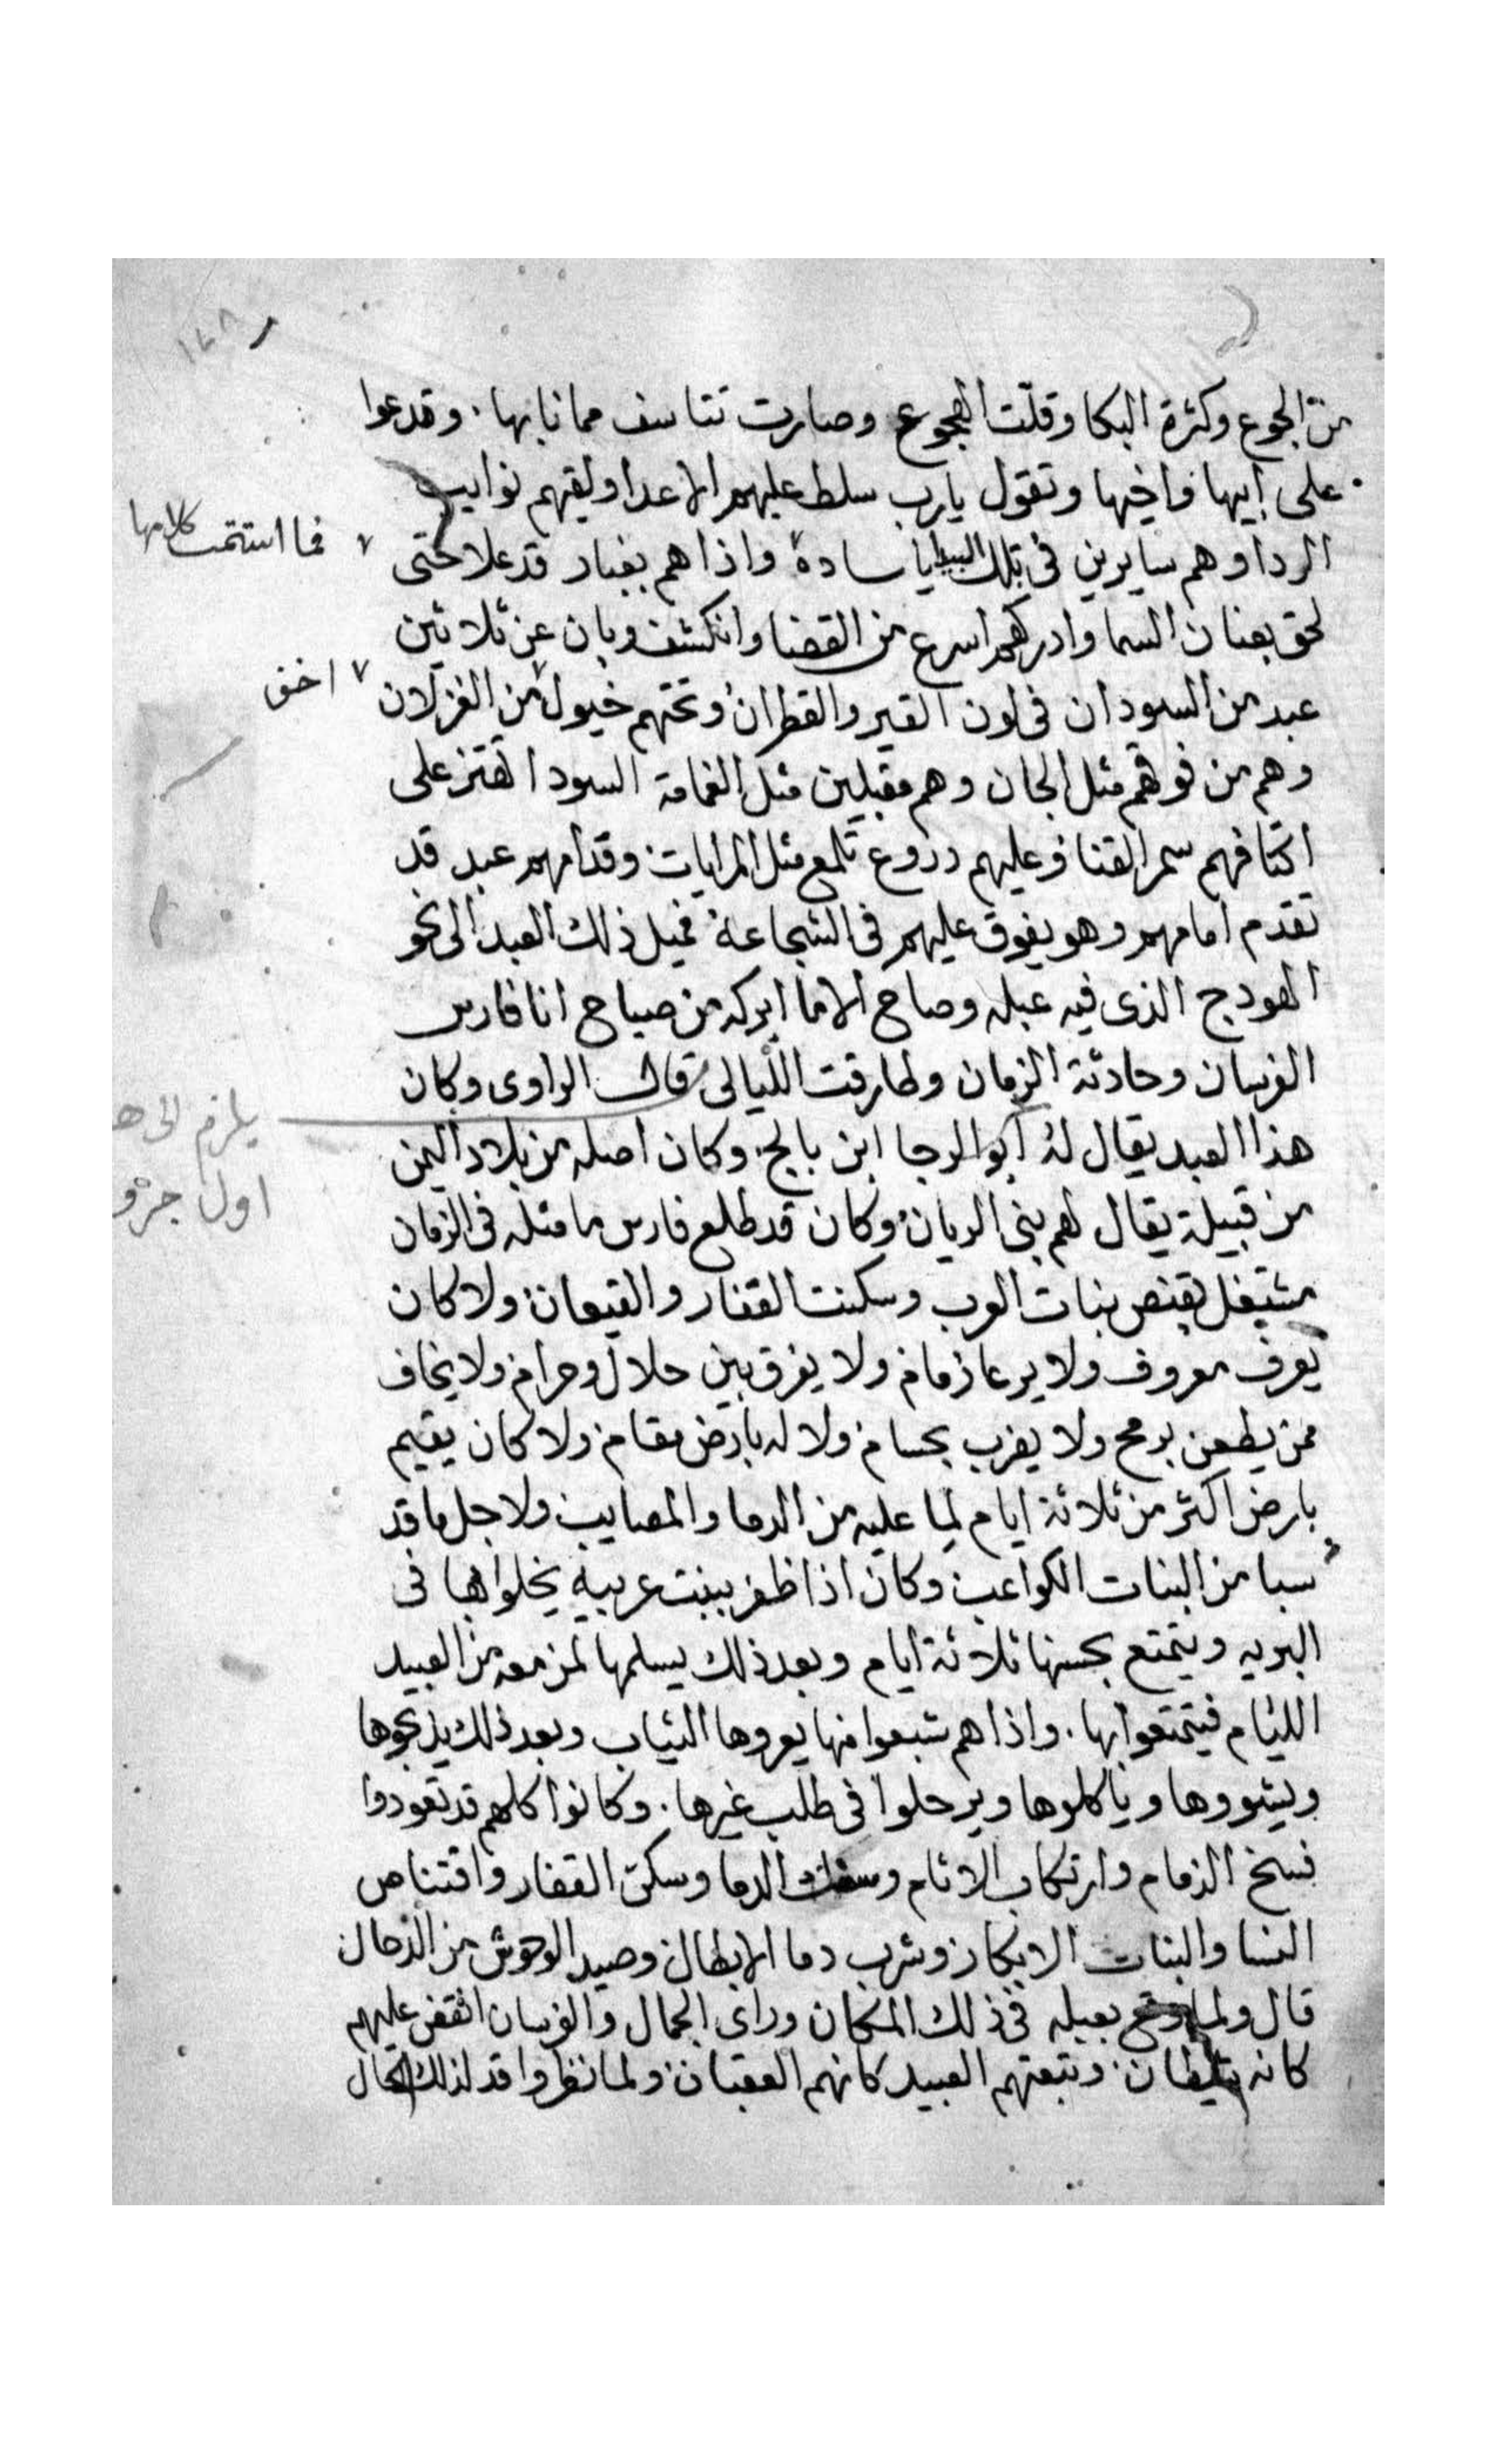 ١٤٨
من الجوع وكثرة البكا وقلت الهجوع وصارت تتاسف مما نابها . وقدعوا
على ابيها واخيها وتقول يارب سلط عليهم الاعدا ولقيهم نوايب
الردا وهم سايرين فى تلك البيدا ياسادة واذا هم بغبار قد علا حتى
فما استتمت كلامها
لحق بعنان السما وادركهم اسرع من القضا وانكشف وبان عن ثلاثين
عبد من السودان فى لون القير والقطران وتحتهم خيول من الغزلان
اخف
وهم من فوقهم مثل الجان وهم مقبلين مثل الغمامة السودا تهتز على
اكتافهم سمر القنا وعليهم دروع تلمع مثل المرايات وقدامهم عبد قد
تقدم امامهم وهو يفوق عليهم فى الشجاعة فميل ذلك العبد الى نحو
الهودج الذى فيه عبله وصاح الاما ابركه من صباح انا فارس
الفرسان وحادثة الزمان وطارقت الليالى قال الراوى وكان
هذا العبد يقال له ابوا الرجا ابن بالج . وكان اصله من بلاد اليمن
يلزم الى ه
اول جزو
من قبيلة يقال لهم بنى الريان وكان قد طلع فارس ما مثله فى الزمان
مشتغل بقنص بنات العرب وسكنت القفار والقيعان ولا كان
يعرف معروف ولا يرعا زمام ولا يفرق بين حلال وحرام ولا يخاف
ممن يطعن برمح ولا يضرب بحسام ولا له بارض مقام ولا كان يقيم
بارض اكثر من ثلاثة ايام لما عليه من الدما والمصايب ولاجل ما قد
سبا من البنات الكواعب وكان اذا ظفر ببنت عربية يخلوا بها فى
البريه ويتمتع بحسنها ثلاثة ايام وبعد ذلك يسلمها لمن معه من العبيد
الليام فيتمتعوا بها . واذا هم شبعوا منها يعروها الثياب وبعد ذلك يذبحوها
ويشووها وياكلوها ويرحلوا فى طلب غيرها . وكانوا كلهم قد تعودوا
فسخ الذمام وارتكاب الاثام وسفك الدما وسكن القفار واقتناص
النسا والبنات الابكار وشرب دما الابطال وصيد الوحوش من الدحال
قال ولما وقع بعبله فى ذلك المكان وراى الجمال والفرسان انقض عليهم
كانه شيطان وتبعتهم العبيد كانهم العقبان ولما نظروا قد لذلك الحال